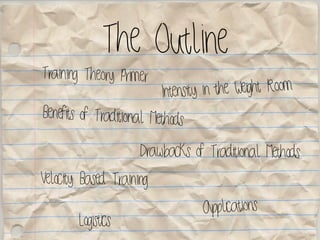 The Outline
Training Theory Primer
Intensity in the Weight Room
Benefits of Traditional Methods
Drawbacks of Traditional Methods
Velocity Based Training
Applications
Logistics